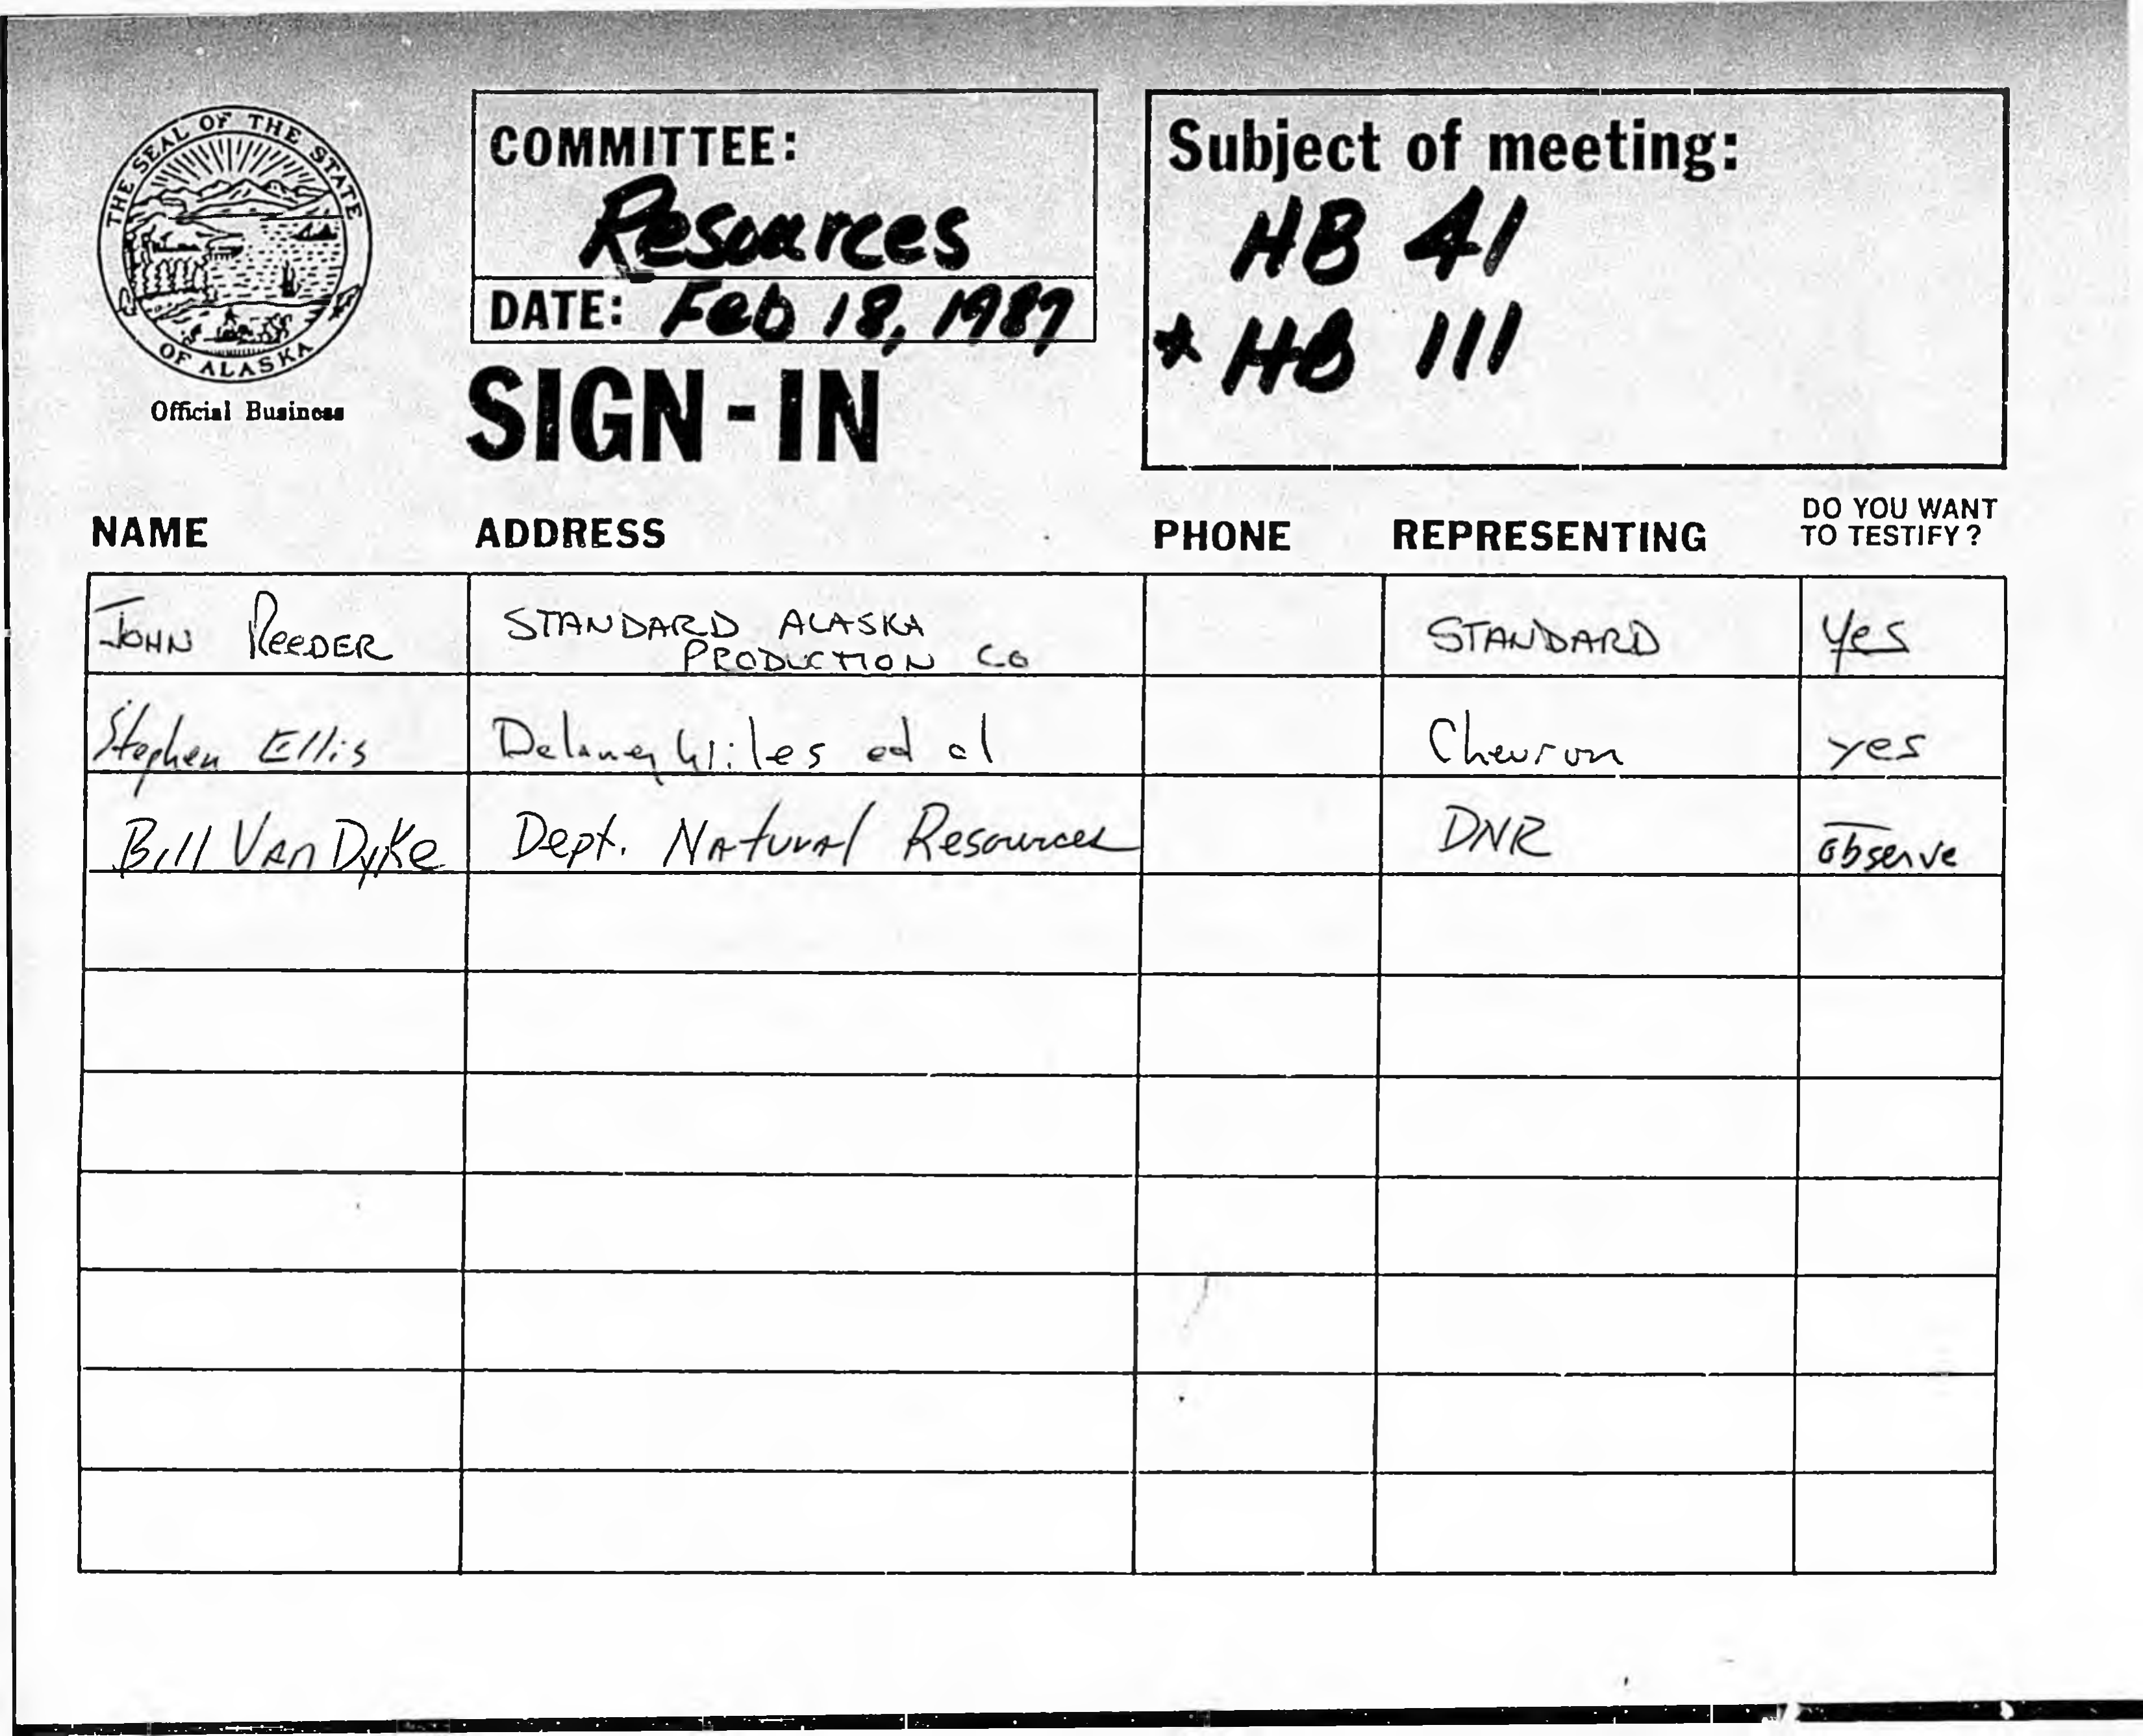 THE SEAL OF THE STATE OF ALASKA
Official Business
COMMITTEE:
Resources
DATE: Feb 18, 1987
SIGN-IN
Subject of meeting:
HB 41
* HB 111
NAME ADDRESS PHONE REPRESENTING DO YOU WANT
TO TESTIFY?
JOHN REEDER STANDARD ALASKA STANDARD Yes
PRODUCTION CO
Stephen Ellis Delaney Wiles ed al Chevron yes
Bill Van Dyke Dept. Natural Resources DNR observe